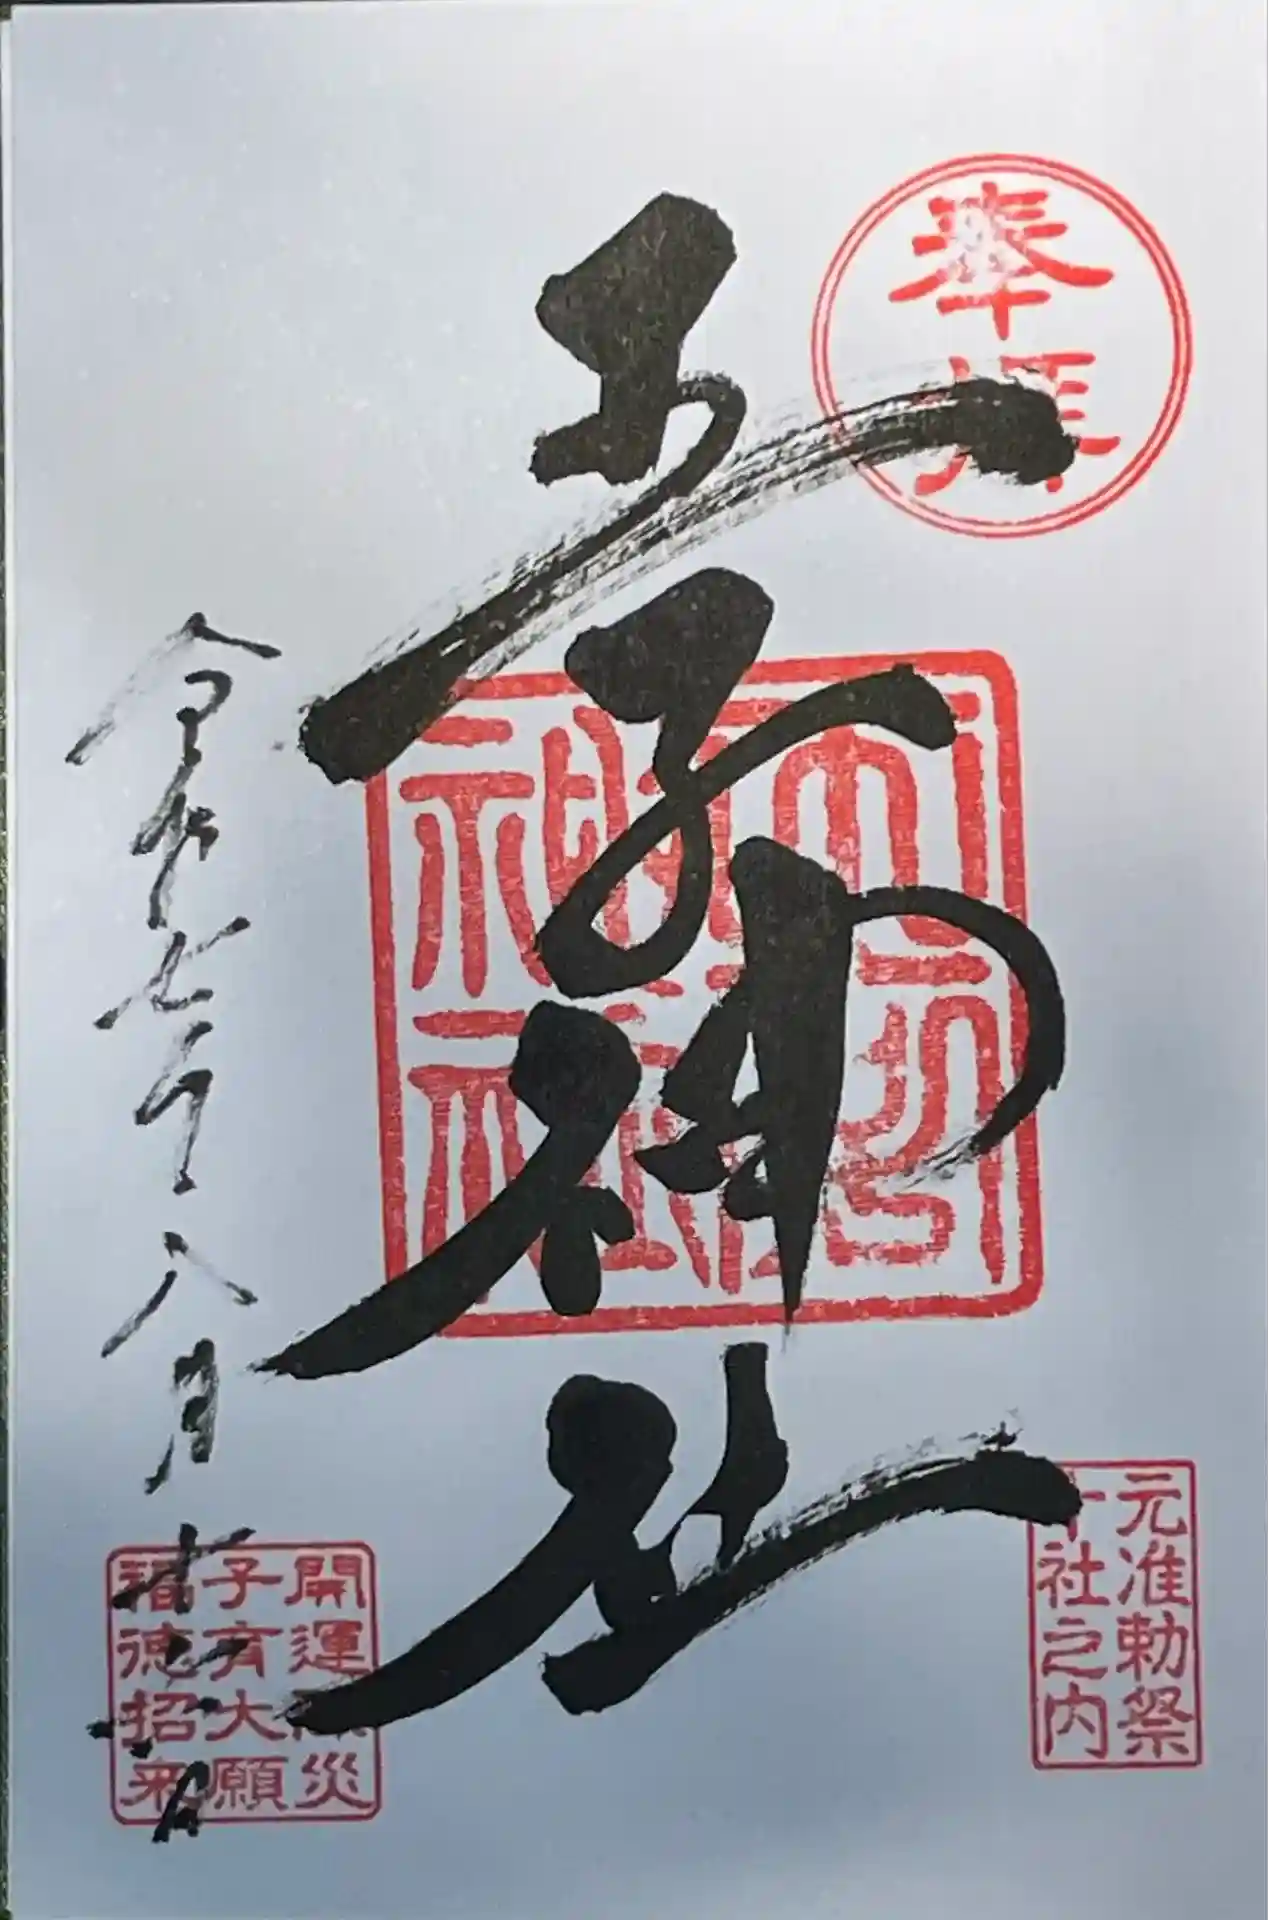 奉拝
元准勅祭
十社之内
王子神社
開運除災
子育大願
福徳招来
令和七年八月
日